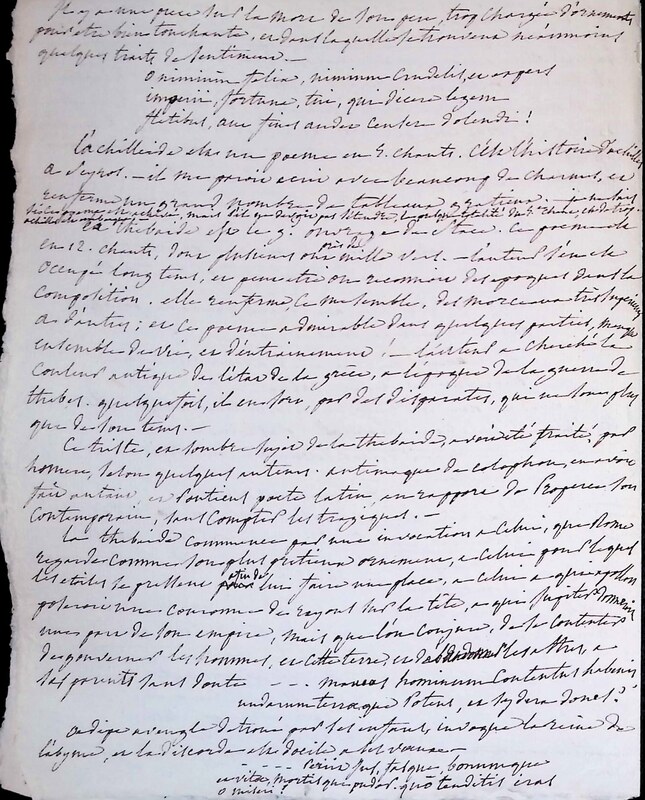 Il y a une piece sur la mort de son pere, trop chargée d'ornements
pour etre bien touchante, et dans laquelle se trouvera neanmoins
quelques traits de sentiment. —
O nimium felix, nimium crudelis, et expers
imperii, fortuna, tui, qui dicere legem
fletibus, aut fines audet censere dolendi!
l'achilleide est un poeme en 5. chants. C'est l'histoire d'achille
a Scyros. — il me paroit ecrit avec beaucoup de charmes, et
renferme un grand nombre de tableaux gratieux. — je ne sais
la thebaide est le g. ouvrage de Stace. Ce poeme est
en 12. chants, dont plusieurs ont près de mille vers. — l'auteur s'en est
occupé long tems, et peut etre on reconnoit des epoques dans la
composition. elle renferme, ce me semble, des morceaux très
a d'autres; et ce poeme admirable dans quelques parties, manque
ensemble de vie, et d'entrainement! — l'auteur a cherché la
couleur antique de l'état de la grèce, a l'epoque de la guerre de
thebes. quelquefois, il en sort, par des disparates, qui ne sont plus
que de son tems. —
Ce triste, et sombre sujet de la thebaide, avoit eté traité, par
homere, selon quelques auteurs. antimaque de colophon, en avoit
fait autant, et Ponticus poete latin, au rapport de Properce son
contemporain, sans compter les tragiques. —
la thebaide commence par une invocation a celui, que Rome
regarde comme son plus pretieux ornement, a celui pour lequel
les etoiles se pressent afin de lui faire une place, a celui a qui apollon
poseroit une couronne de rayons sur la tête, a qui Jupiter donneroit
une part de son empire, mais que l'on conjure, de se contenter
de gouverner les hommes, et cette terre, et d'abandonner les astres, a
ses parents sans doute - - - maneas hominum contentus habenis
undarum terraeque potens, et sydera dones?
oedipe aveugle detroné par ses enfants, invoque la reine de
l'abyme, et la discorde est docile a ses voeux —
- - - - Periit jus, fasque, bonumque
et vitae, mortisque pudor. quo tenditis iras
O miseri!